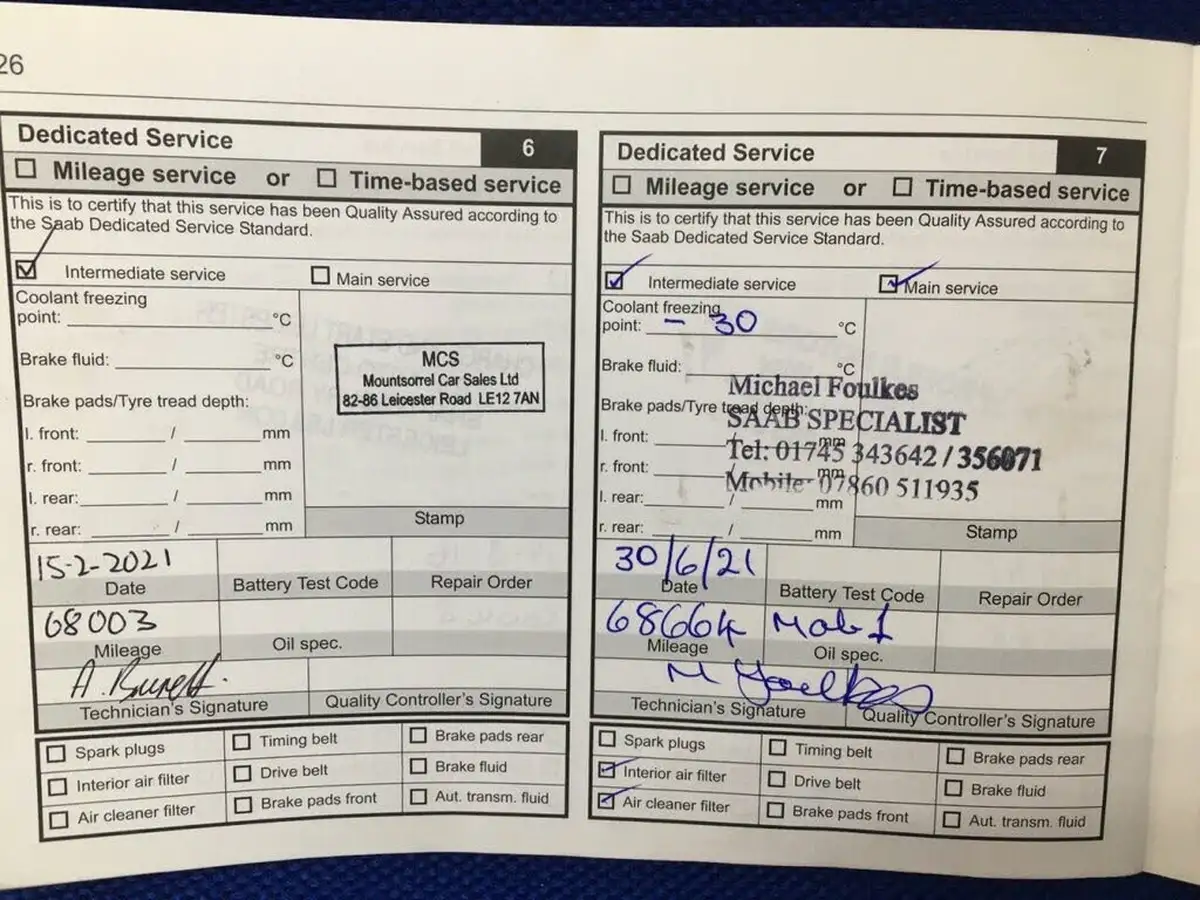 26
Dedicated Service 6
Mileage service or Time-based service
This is to certify that this service has been Quality Assured according to
the Saab Dedicated Service Standard.
Intermediate service Main service
Coolant freezing
point: °C
Brake fluid: °C
Brake pads/Tyre tread depth:
l. front: / mm
r. front: / mm
l. rear: / mm
r. rear: / mm
MCS
Mountsorrel Car Sales Ltd
82-86 Leicester Road LE12 7AN
Stamp
15-2-2021
Date Battery Test Code Repair Order
68003
Mileage Oil spec.
A.
Technician's Signature Quality Controller's Signature
Spark plugs Timing belt Brake pads rear
Interior air filter Drive belt Brake fluid
Air cleaner filter Brake pads front Aut. transm. fluid
Dedicated Service 7
Mileage service or Time-based service
This is to certify that this service has been Quality Assured according to
the Saab Dedicated Service Standard.
Intermediate service Main service
Coolant freezing
point: - 30 °C
Brake fluid: °C
Brake pads/Tyre tread depth:
l. front: / mm
r. front: / mm
l. rear: / mm
r. rear: / mm
Michael Foulkes
SAAB SPECIALIST
Tel: 01745 343642 / 356071
Mobile: 07860 511935
Stamp
30/6/21
Date Battery Test Code Repair Order
68664 Mob 1
Mileage Oil spec.
M Foulkes
Technician's Signature Quality Controller's Signature
Spark plugs Timing belt Brake pads rear
Interior air filter Drive belt Brake fluid
Air cleaner filter Brake pads front Aut. transm. fluid